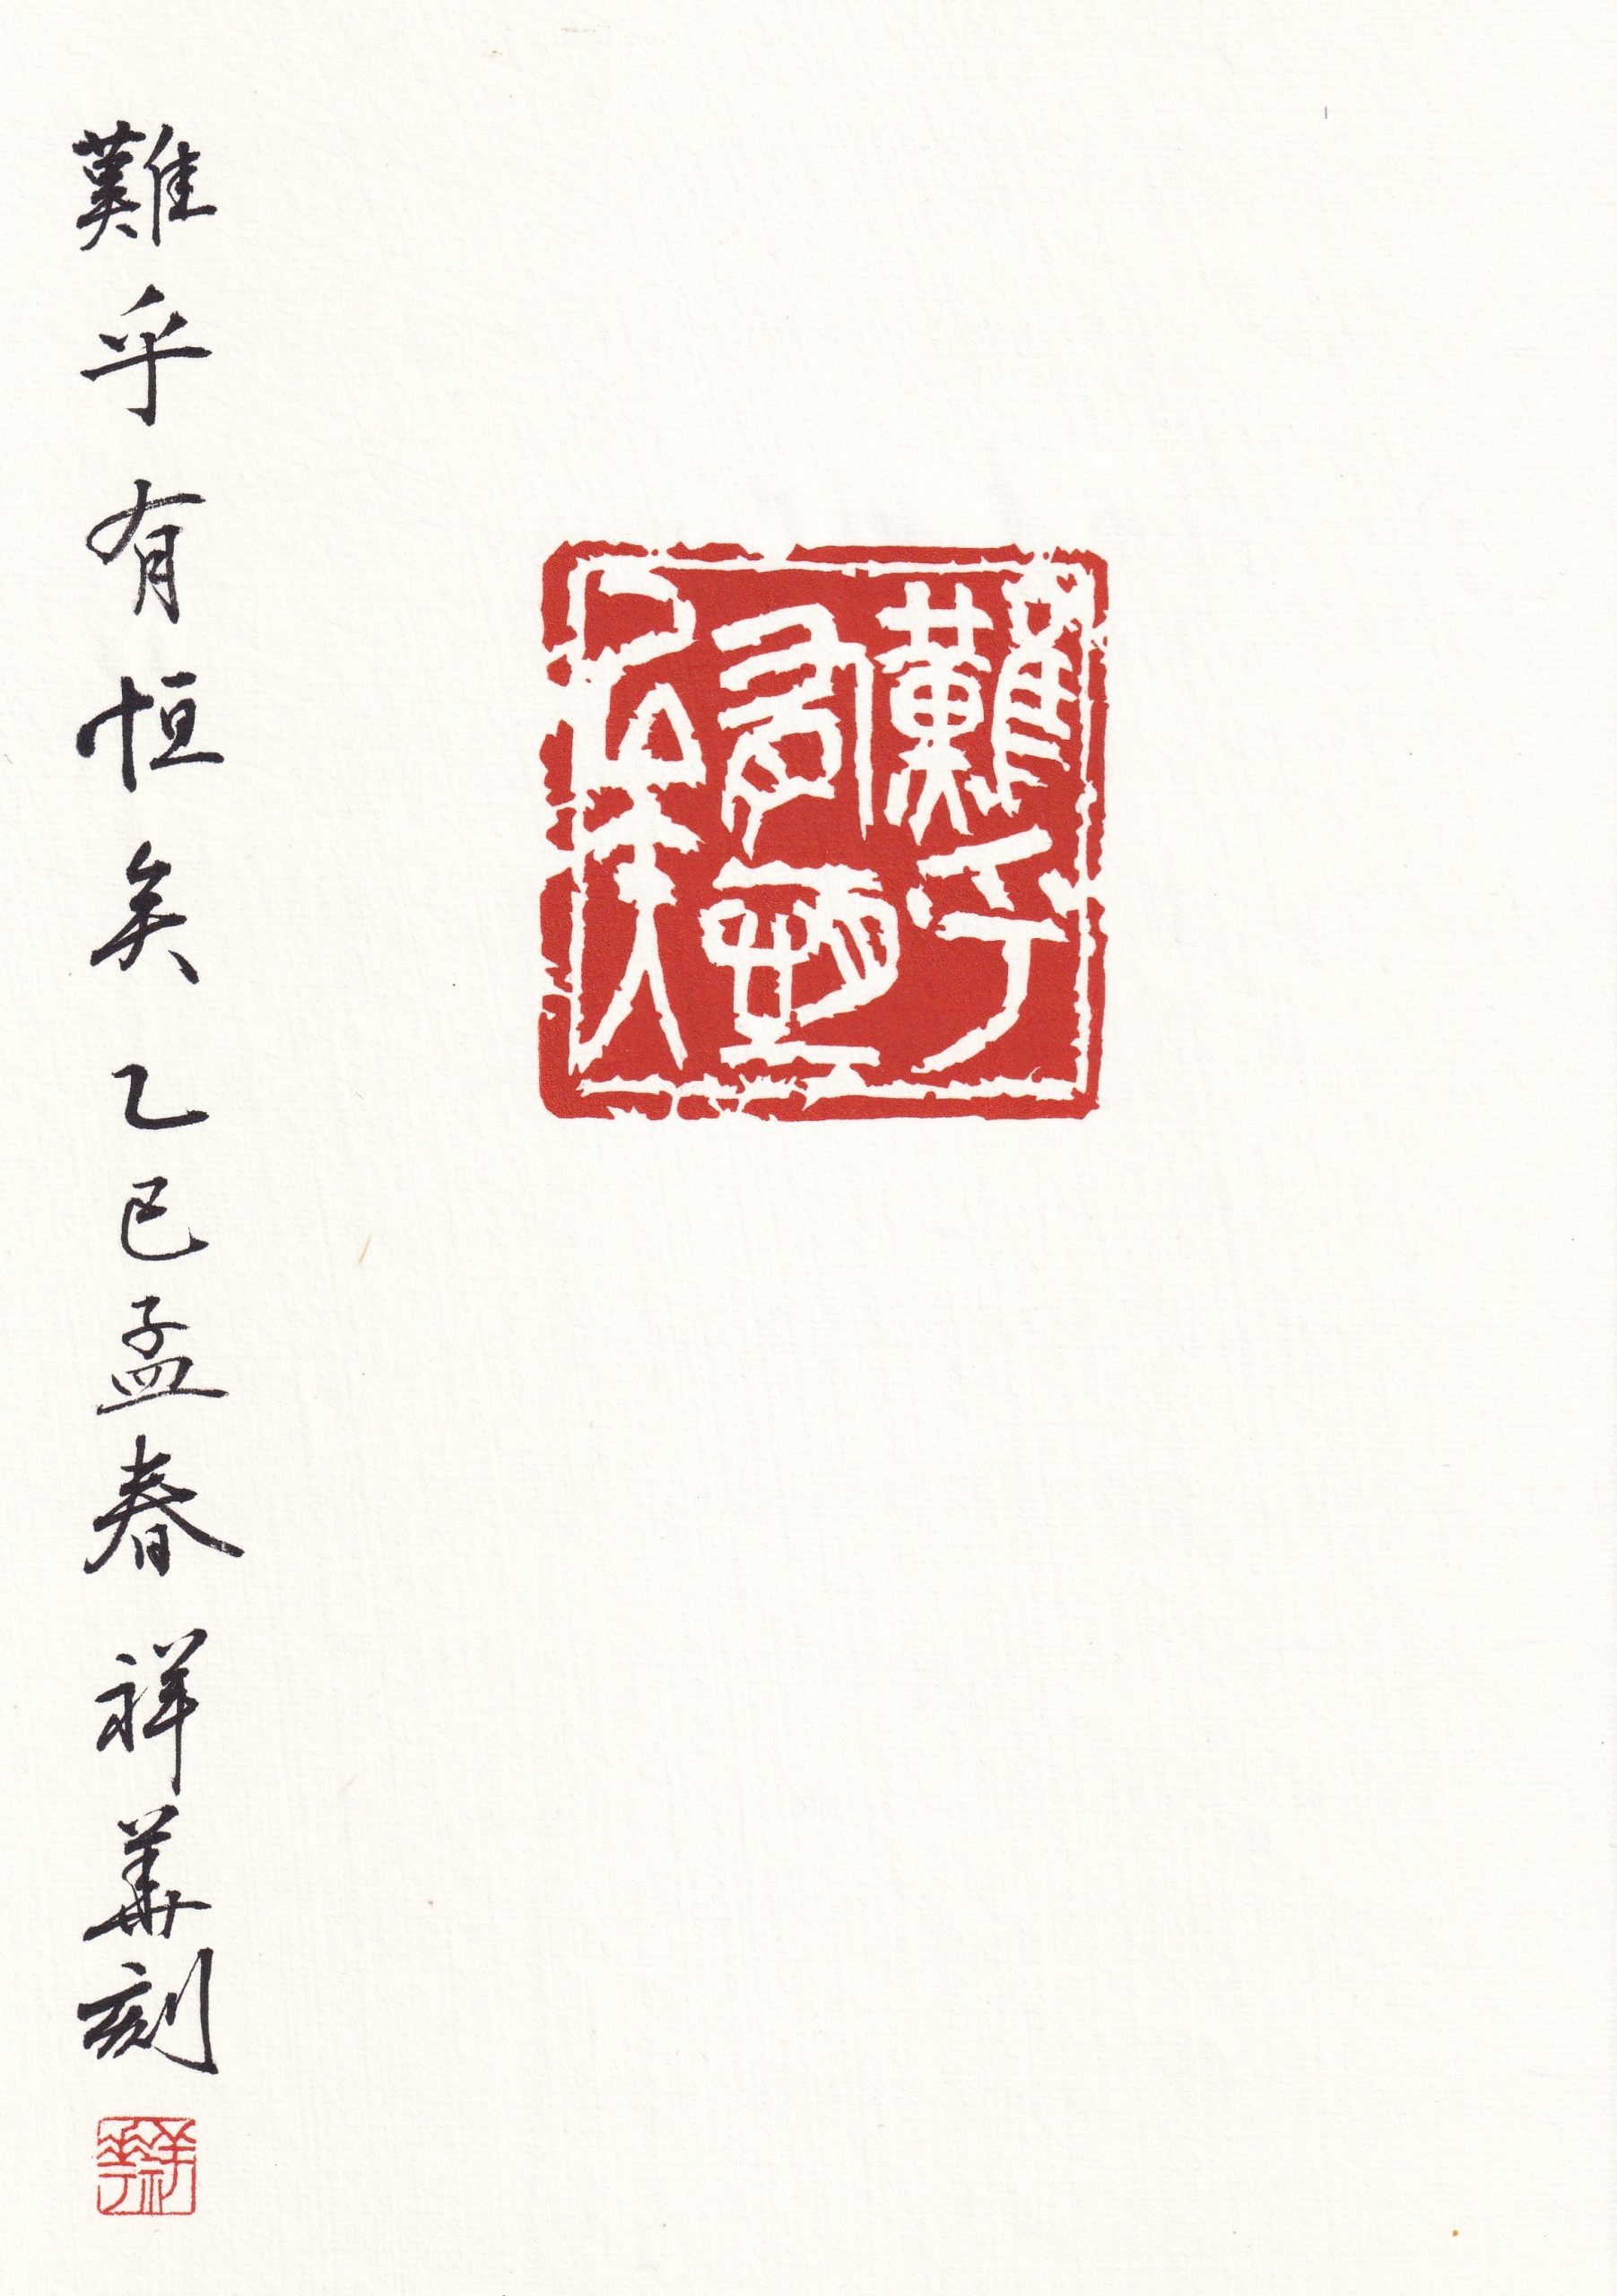 難乎
有恒
矣
難乎有恒矣 乙巳孟春 祥華刻
祥華